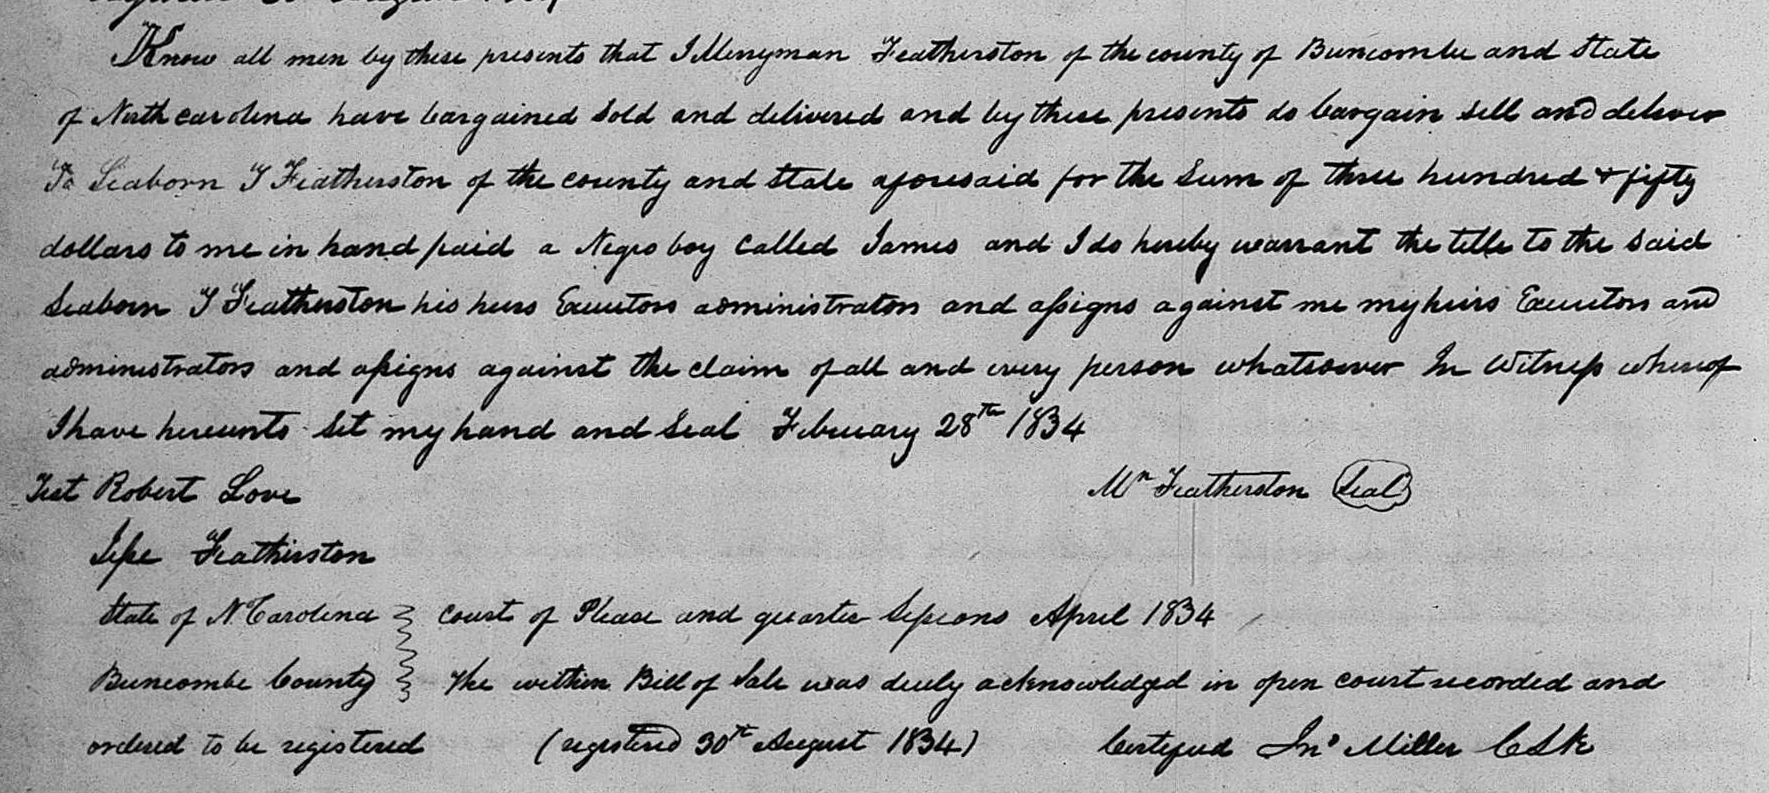 Know all men by these presents that I Merryman Featherston of the county of Buncombe and State
of North carolina have bargained Sold and delivered and by these presents do bargain sell and deliver
To Seaborn J Featherston of the county and State aforesaid for the Sum of three hundred & fifty
dollars to me in hand paid a Negro boy called James and I do hereby warrant the title to the Said
Seaborn J Featherston his heirs Executors administrators and assigns against me my heirs Executors and
administrators and assigns against the claim of all and every person whatsoever In Witness whereof
I have hereunto Set my hand and Seal February 28th 1834
Test Robert Love Mn Featherston Seal
Jesse Featherston
State of N Carolina court of Please and quarter Sessions April 1834
Buncombe County The within Bill of Sale was duely acknowledged in open court recorded and
ordered to be registered (registered 30th August 1834) Certifyed Jno Miller Clk